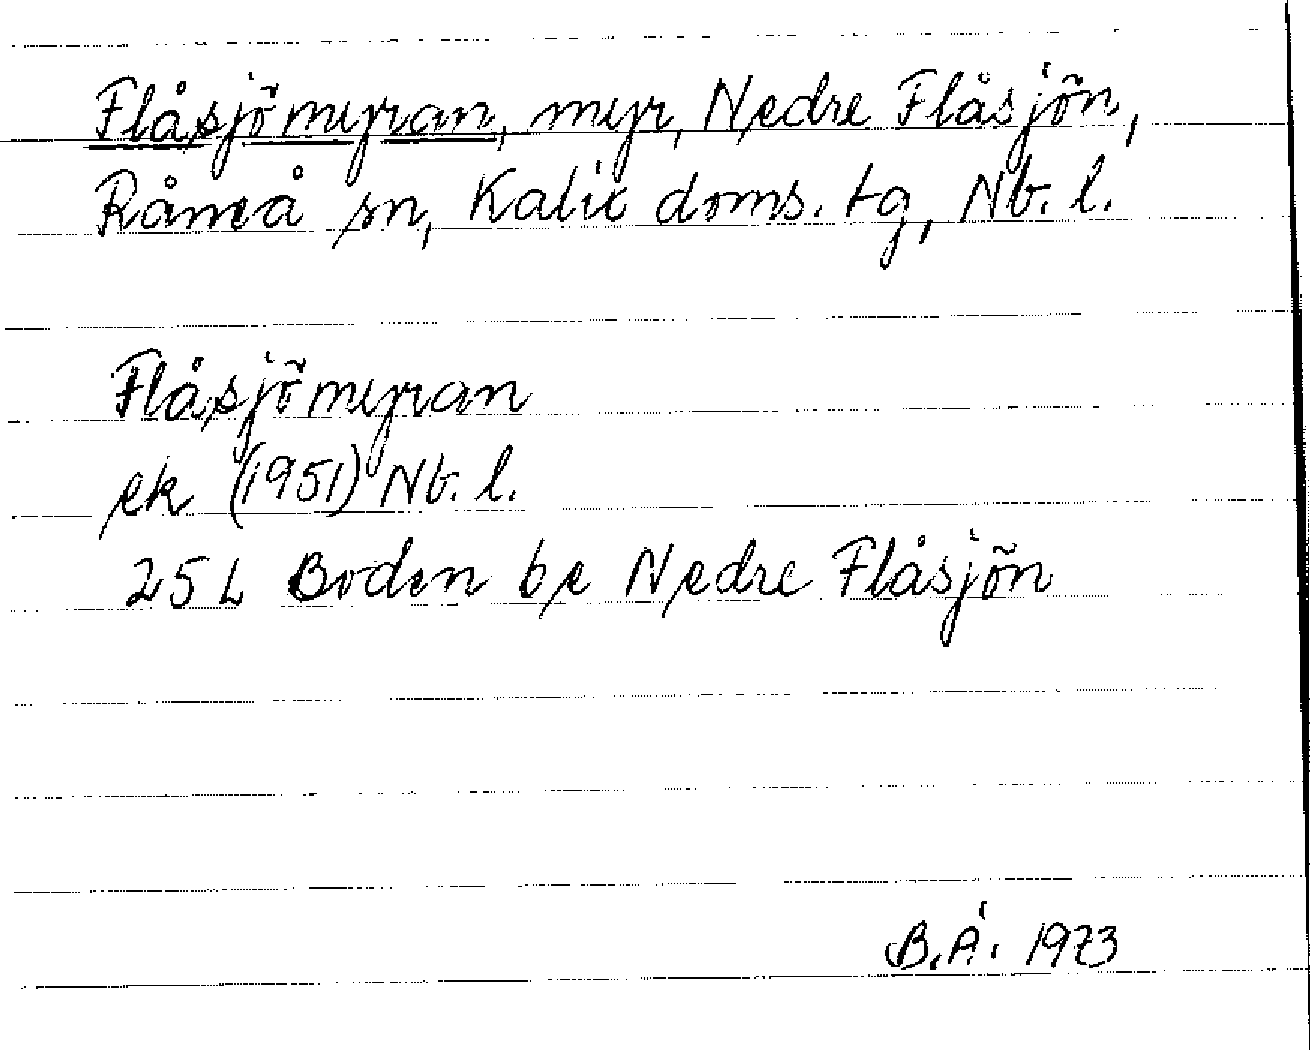 Flåsjömyran, myr, Nedre Flåsjön,
Råneå sn, Kalix doms. tg, Nb. l.
Flåsjömyran
ek (1951) Nb. l.
25 L Boden be Nedre Flåsjön
B.Å. 1973